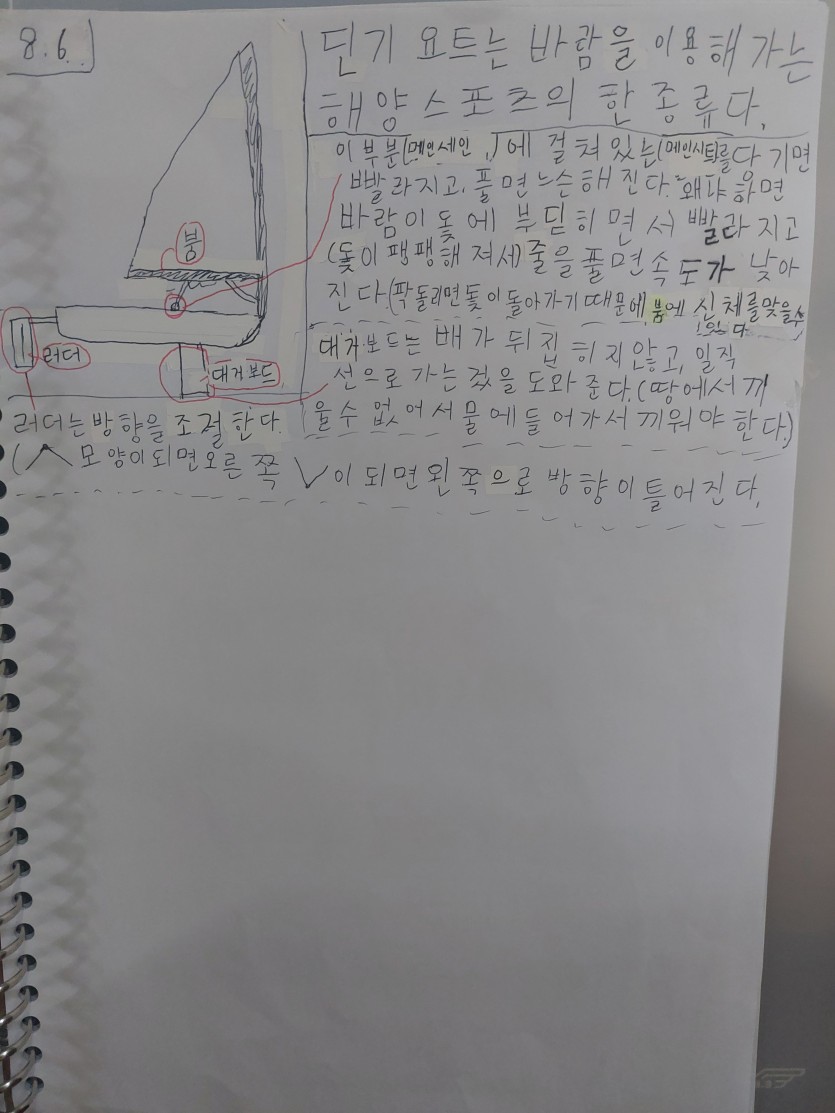 8.6.
딘기 요트는 바람을 이용해 가는
해양스포츠의 한 종류다.
이 부분(메인세인,)에 걸쳐있는(메인시트)를 다기면
빨라지고, 풀면 느슨해진다. 왜냐 하면
바람이 돛에 부딛히면서 빨라지고
(돛이 팽팽해져서) 줄을 풀면 속도가 낮아
진다.(팍 돌리면 돛이 돌아가기 때문에 붐에 신체를 맞을수
있다
대거보드는 배가 뒤집히지 않고, 일직
선으로 가는 것을 도와준다.(땅에서 끼
울 수 없어서 물에 들어가서 끼워야 한다.)
붕
러더
대거보드
러더는 방향을 조절한다.
(∧ 모양이 되면 오른쪽 ∨이 되면 왼쪽으로 방향이 틀어진다.